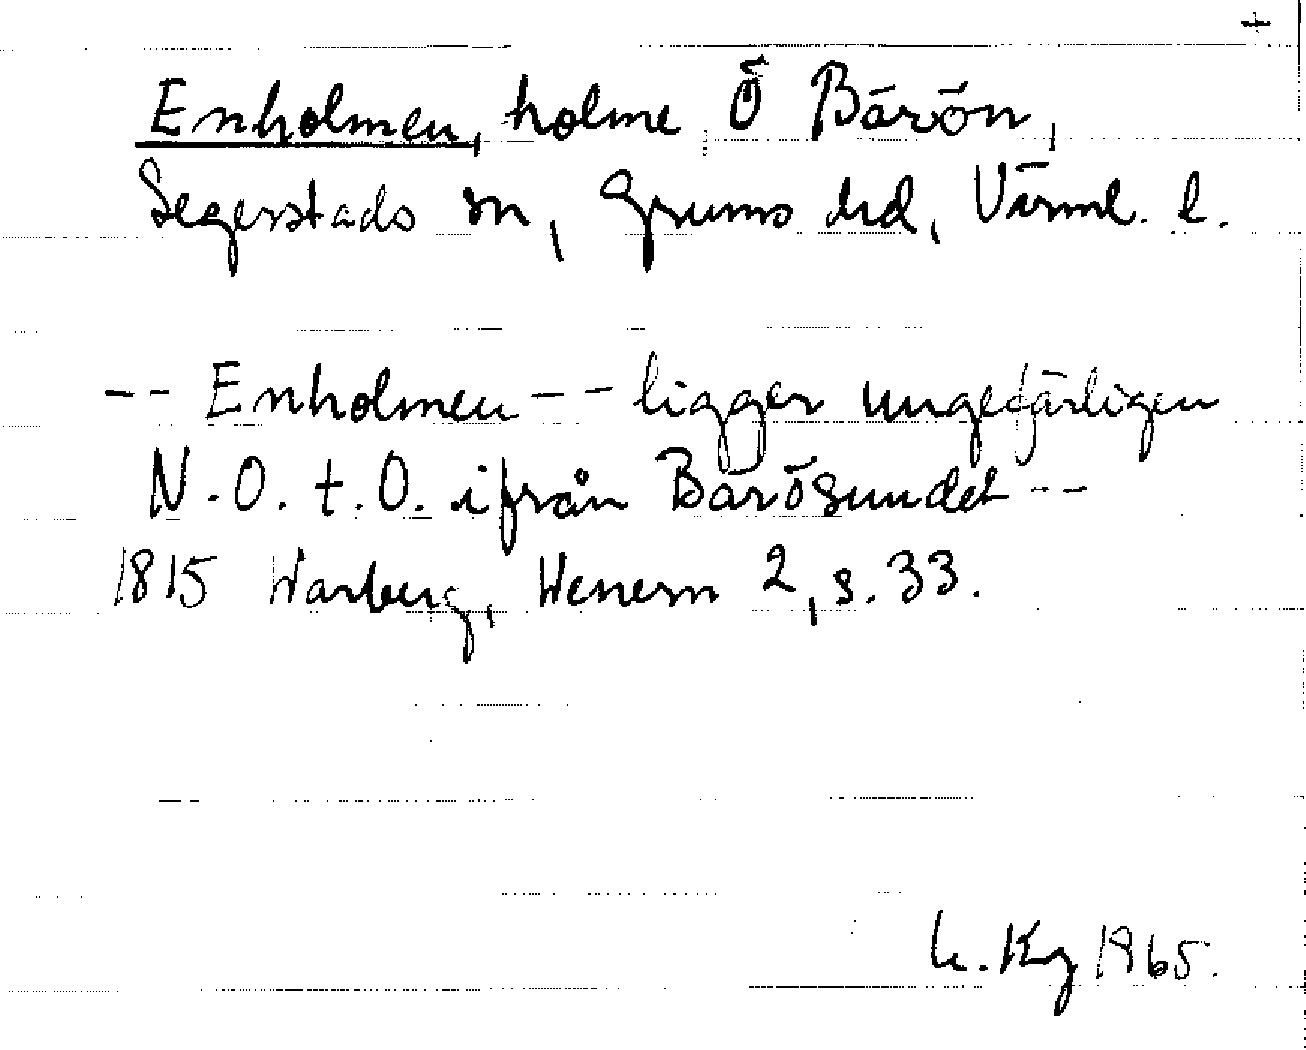 Enholmen, holme Ö Bärön,
Segerstads sn, Grums hd, Värml. l.
-- Enholmen -- ligger ungefärligen
N.O. t. O. ifrån Bärösundet --
1815 Warberg, Wenern 2, s. 33.
Kg 1965.